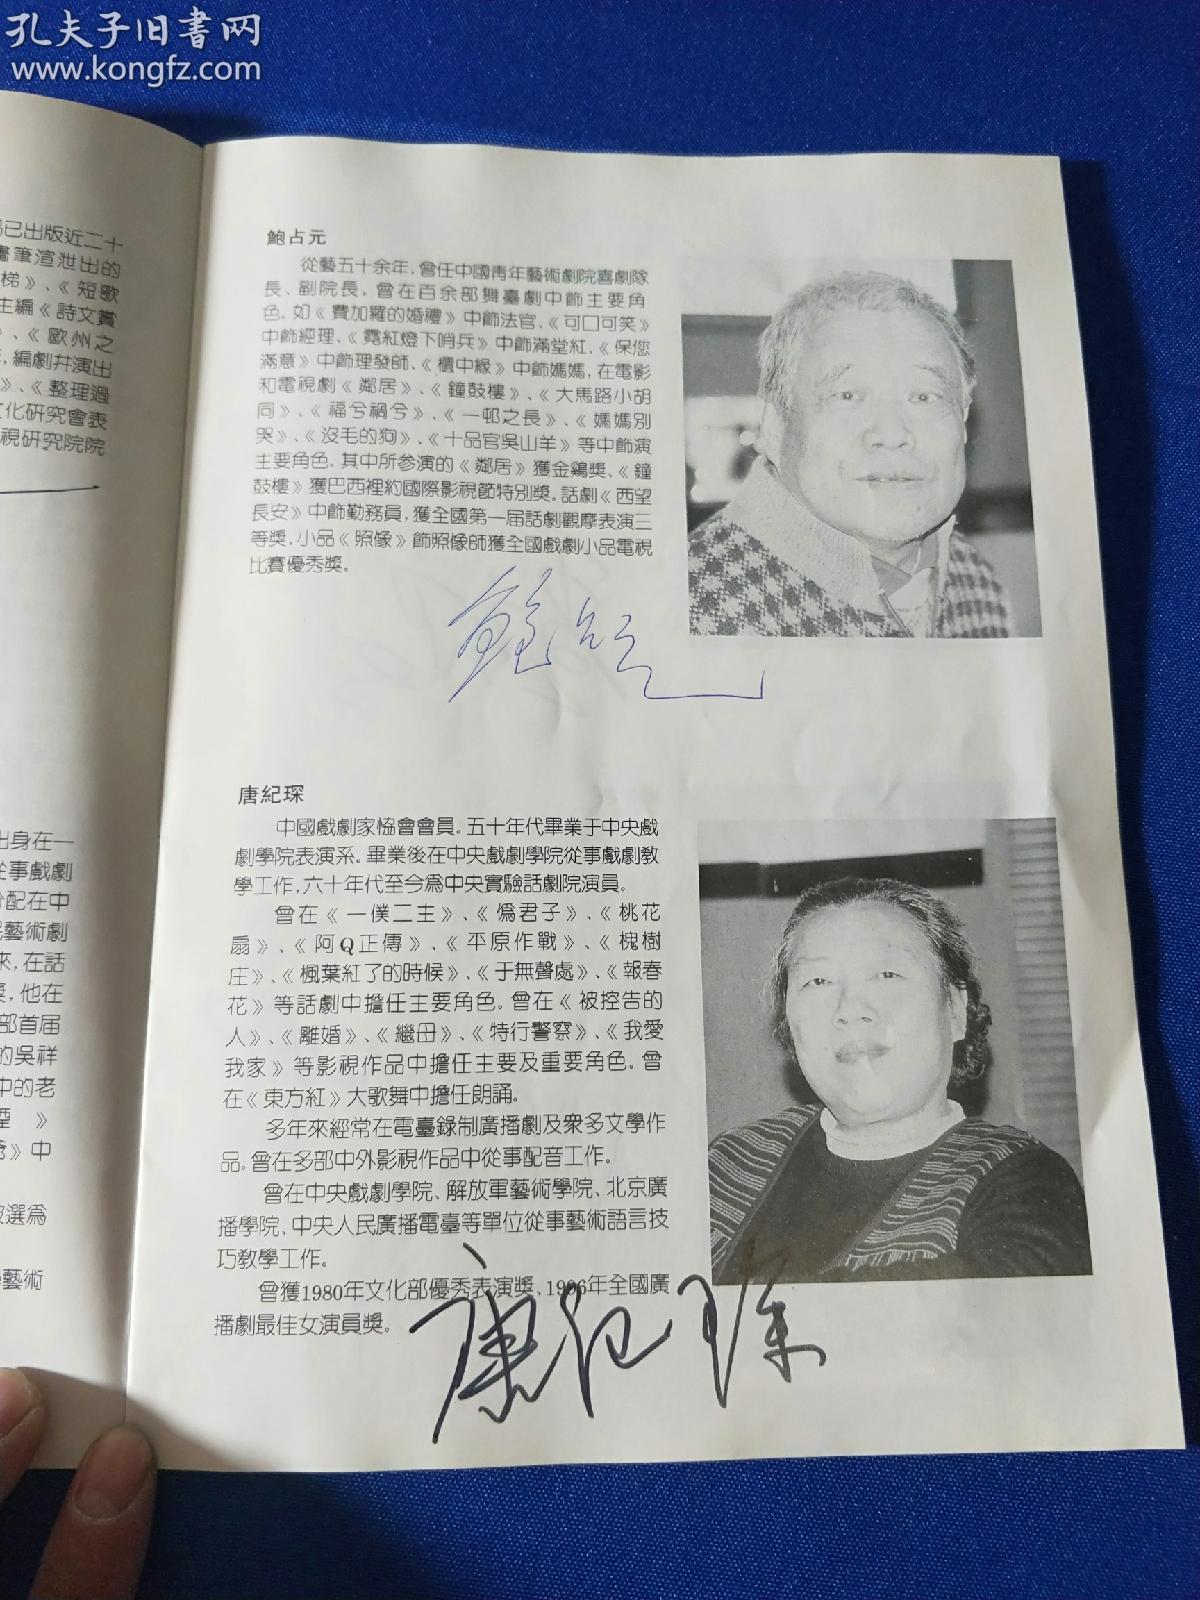 孔夫子旧书网
www.kongfz.com
已出版近二十
書筆渲泄出的
梯》、《短歌
主編《詩文賞
》、《歐州之
，編劇幷演出
》、《整理過
文化研究會表
視研究院院
出身在一
從事戲劇
分配在中
民藝術劇
來，在話
獎，他在
部首届
的吳祥
中的老
》
》中
被選爲
藝術
鮑占元
從藝五十余年，曾任中國靑年藝術劇院喜劇隊
長、副院長，曾在百余部舞臺劇中飾主要角
色。如《費加羅的婚禮》中飾法官、《可口可笑》
中飾經理、《霓紅燈下哨兵》中飾滿堂紅、《保您
滿意》中飾理發師、《櫃中緣》中飾媽媽，在電影
和電視劇《鄰居》、《鐘鼓樓》、《大馬路小胡
同》、《福兮禍兮》、《一邨之長》、《媽媽別
哭》、《沒毛的狗》、《十品官吳山羊》等中飾演
主要角色。其中所参演的《鄰居》獲金鷄獎、《鐘
鼓樓》獲巴西裡約國際影視節特別獎。話劇《西望
長安》中飾勤務員，獲全國第一届話劇觀摩表演三
等獎，小品《照像》飾照像師獲全國戲劇小品電視
比賽優秀獎。
鮑占元
唐紀琛
中國戲劇家協會會員。五十年代畢業于中央戲
劇學院表演系。畢業後在中央戲劇學院從事戲劇敎
學工作，六十年代至今爲中央實驗話劇院演員。
曾在《一僕二主》、《僞君子》、《桃花
扇》、《阿Q正傳》、《平原作戰》、《槐樹
庄》、《楓葉紅了的時候》、《于無聲處》、《報春
花》等話劇中擔任主要角色。曾在《被控告的
人》、《離婚》、《繼母》、《特行警察》、《我愛
我家》等影視作品中擔任主要及重要角色。曾
在《東方紅》大歌舞中擔任朗誦。
多年來經常在電臺錄制廣播劇及衆多文學作
品。曾在多部中外影視作品中從事配音工作。
曾在中央戲劇學院、解放軍藝術學院、北京廣
播學院、中央人民廣播電臺等單位從事藝術語言技
巧敎學工作。
曾獲1980年文化部優秀表演獎、1996年全國廣
播劇最佳女演員獎。
唐纪琛